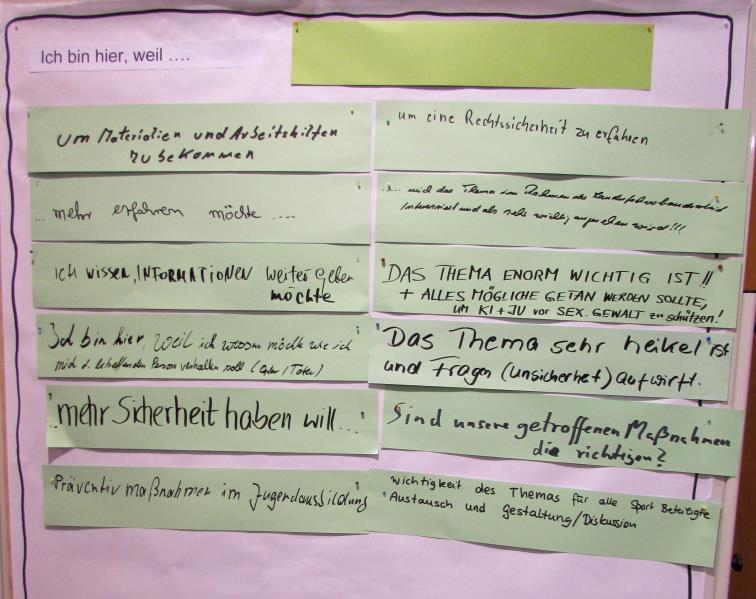 Ich bin hier, weil ....
um Materialien und Arbeitshilfen
zu bekommen
... mehr erfahren möchte ....
ich wissen, INFORMATIONEN weiter geben
möchte
Ich bin hier, weil ich wissen möchte wie ich
mich d. betreffenden Person verhalten soll (Opfer / Täter)
...mehr Sicherheit haben will...
Präventivmaßnahmen im Jugendausbildung
um eine Rechtssicherheit zu erfahren
... mich das Thema im Rahmen der
interessiert und als sehr wichtig angesehen wird!!!
DAS THEMA ENORM WICHTIG IST!!
+ ALLES MÖGLICHE GETAN WERDEN SOLLTE,
UM KI + JU vor SEX. GEWALT zu schützen!
Das Thema sehr heikel ist
und Fragen (unsicherheit) aufwirft.
Sind unsere getroffenen Maßnahmen
die richtigen?
Wichtigkeit des Themas für alle Sport Beteiligte
Austausch und Gestaltung/Diskussion